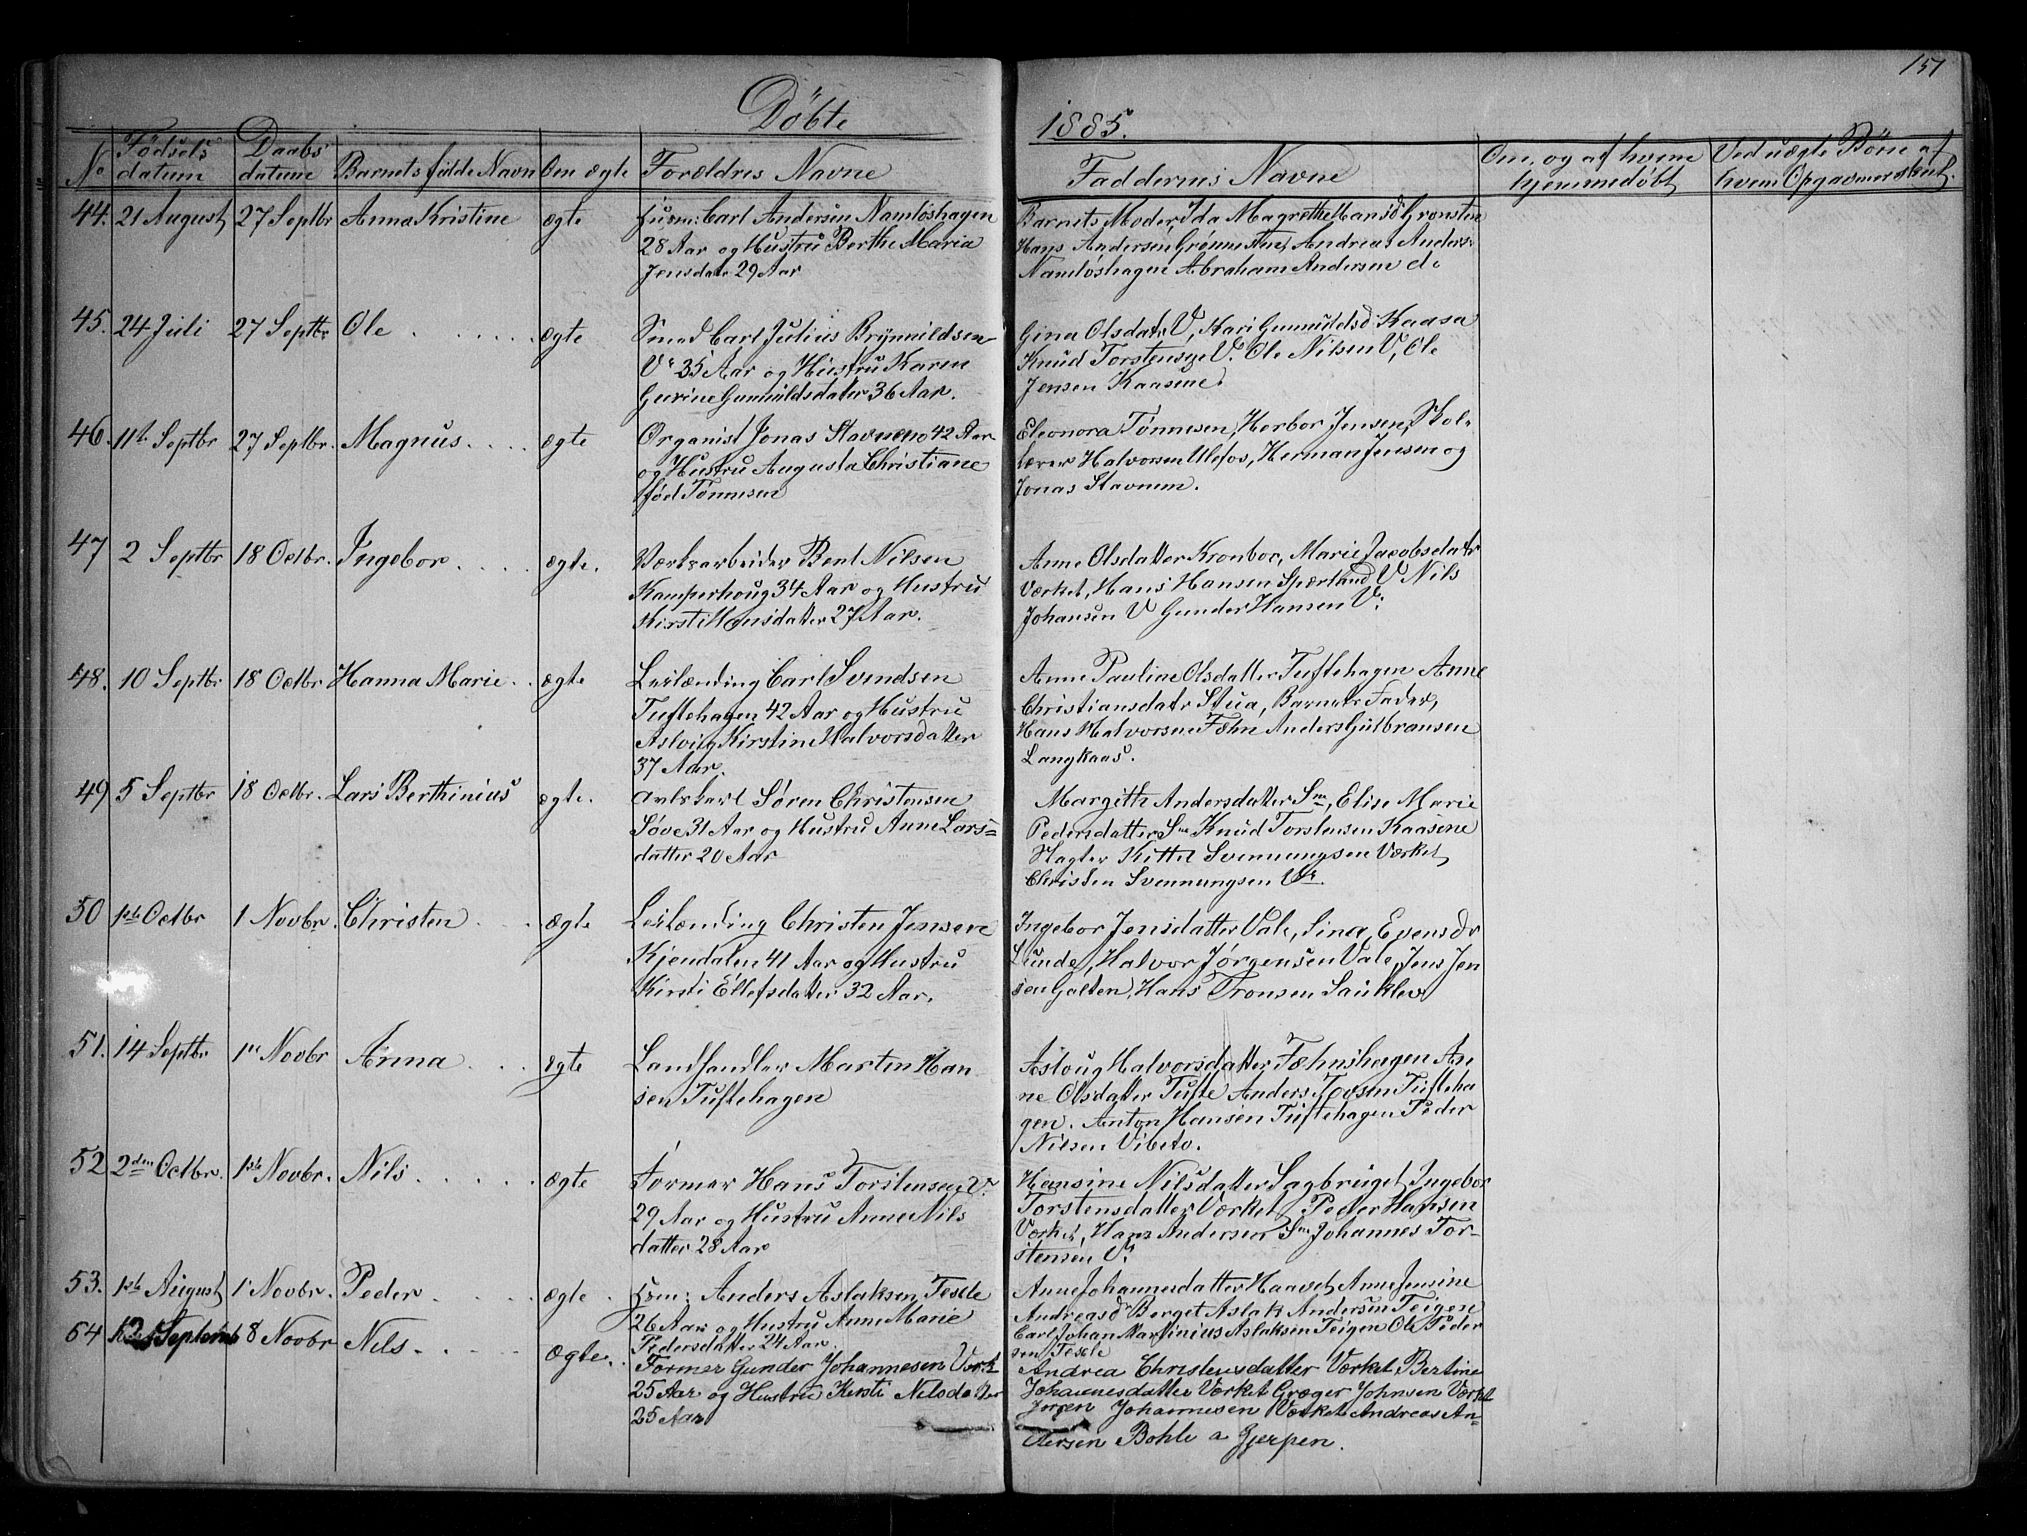 151
Døbte 1885.
No Fødsels datum Daabs datum Barnets fulde Navn Om ægte Forældres Navne Faddernes Navne Om, og af hvem hjemmedøbt Ved uægte Børn af hvem Opgaven er skeet.
44. 21 August 27 Septbr Anna Kristine ægte
Husm: Carl Andersen Namløshagen
28 Aar og Hustru Berthe Maria
Jensdatr 29 Aar
Barnets Moder, Ida Magrethe Hansd Grønsten
Hans Andersen Grønnesten, Andreas Anders.
Namløshagen Abraham Andersen d:
45. 24 Juli 27 Septbr Ole ægte
Smed Carl Julius Brynnildsen
V 35 Aar og Hustru Karen
Gurine Gunnildsdatter 36 Aar.
Gina Olsdatr V, Kari Gunnuldsd Kaasa
Knud Torstensen V. Ole Nilsen V, Ole
Jensen Kaasene.
46. 11te Septbr 27 Septbr. Magnus ægte
Organist Jonas Stavnem 42 Aar
og Hustru Augusta Christiane
fød Tønnesen
Eleonora Tønnesen, Herbor Jensen, Skol-
lærer Halvorsen Ulefos, Herman Jensen og
Jonas Stavnem.
47 2 Septbr 18 Octbr. Ingebor ægte.
Værksarbeider Bent Nilsen
Kamperhoug 34 Aar og Hustru
Kirsti Hansdatter 27 Aar.
Anne Olsdatter Kronboe, Marie Jacobsdatr
Værket, Hans Hansen Spærland V Nils
Johansen V Gunder Hansen V:
48. 10 Septbr 18 Octbr Hanna Marie ægte
Leilænding Carl Svendsen
Tuftehagen 42 Aar og Hustru
Aslvig Kirstine Halvorsdatter
37 Aar.
Anne Pauline Olsdatter Tuftehagen Anne
Christiansdatr Stua, Barnets Fader,
Hans Halvorsen Fæhn Anders Gulbransen
Langkaas.
49 5 Septbr 18 Octbr. Lars Berthinius ægte.
Avlskarl Søren Christensen
Søve 31 Aar og Hustru Anne Lars-
datter 20 Aar
Margith Andersdatter Sve, Elise Marie
Pedersdatter Sve Knud Torstensen Kaasene
Slagter Kittel Svennungsen Værket,
Christen Svennungsen V.
50 1ste Octbr 1 Novbr. Christen ægte
Leilænding Christen Jensen
Kjendalen 41 Aar og Hustru
Kirsti Ellefsdatter 32 Aar.
Ingebor Jensdatter Vale, Sina, Evensdr
Lunde, Halvor Jørgensen Vale, Jens Jen
sen Galten, Hans Tronsen Sauklev
51. 14 Septbr 1 Novbr Anna ægte
Landhandler Marten Han
sen Tuftehagen
Asloug Halvorsdatter Fæhnshagen An
ne Olsdatter Tufte Anders Tovsen Tufteha
gen. Anton Hansen Tuftehagen Peder
Nilsen Vibeto.
52 2den Octbr. 1ste Novbr. Nils ægte
Former Hans Torstensen V.
29 Aar og Hustru Anne Nils
datter 28 Aar
Hansine Nilsdatter Sagbruget Ingebor
Torstensdatter Værket, Peder Hansen
Værket, Hans Andersen Sve Johannes Tor-
stensen V.
53. 1ste August 1 Novbr. Peder ægte
Hsm: Anders Aslaksen Tesele
26 Aar og Hustru Anne Marie
Pedersdatter 24 Aar.
Anne Johannesdatter Haavet, Anne Jensine
Andreasdr Berget Aslak Andersen Teigen
Carl Johan Martinius Aslaksen Teigen Ole Peder
sen Tesele
64 Septemb 8 Novbr Nils ægte.
Former Gunder Johannesen Værk
25 Aar og Hustru Kersti Nilsdatter
25 Aar
Andrea Christensdatter Værket Bertine
Johannesdatter Værket Græger Johnsen Værket
Jørgen Johannesen Værket Andreas An-
dersen Bohle a Gjerpen.